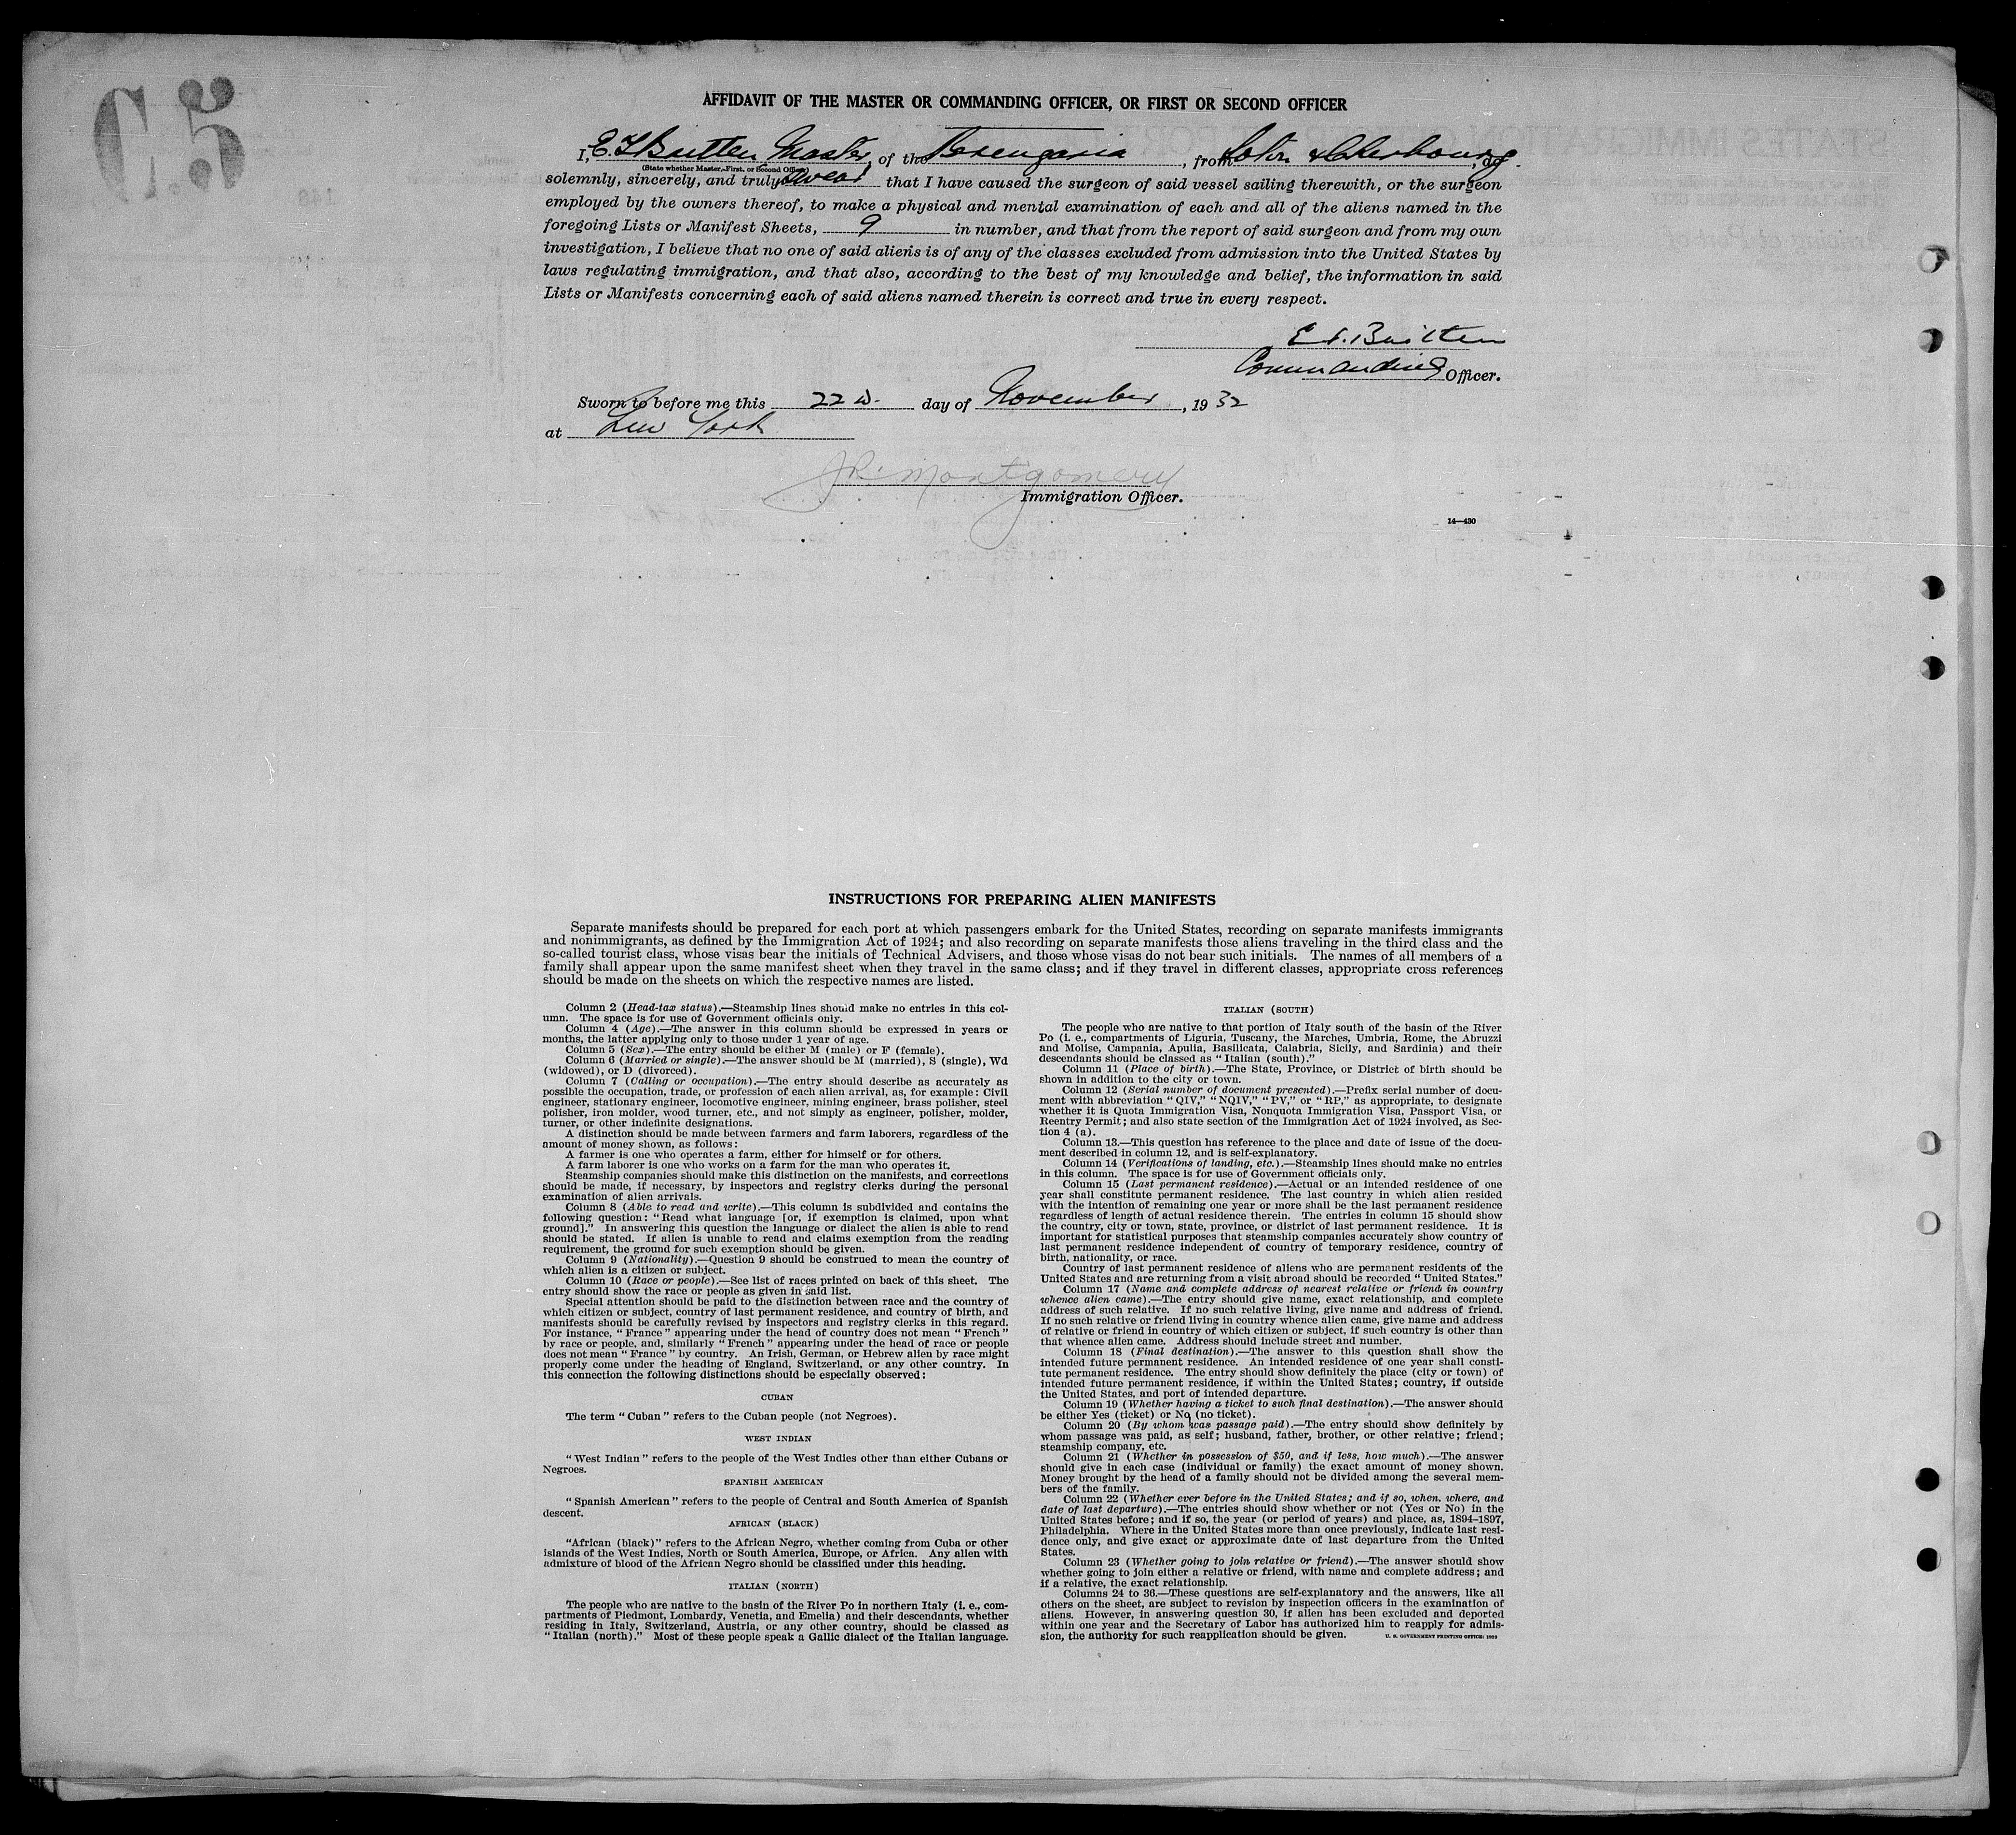 AFFIDAVIT OF THE MASTER OR COMMANDING OFFICER, OR FIRST OR SECOND OFFICER
I, E. T. Britten Master, of the Berengaria, from Soton & Cherbourg, do
(State whether Master, First, or Second Officer)
solemnly, sincerely, and truly swear that I have caused the surgeon of said vessel sailing therewith, or the surgeon
employed by the owners thereof, to make a physical and mental examination of each and all of the aliens named in the
foregoing Lists or Manifest Sheets, 9 in number, and that from the report of said surgeon and from my own
investigation, I believe that no one of said aliens is of any of the classes excluded from admission into the United States by
laws regulating immigration, and that also, according to the best of my knowledge and belief, the information in said
Lists or Manifests concerning each of said aliens named therein is correct and true in every respect.
E. T. Britten
Commanding Officer.
Sworn to before me this 22d. day of November, 1932
at New York
J R Montgomery
Immigration Officer.
14—430
INSTRUCTIONS FOR PREPARING ALIEN MANIFESTS
Separate manifests should be prepared for each port at which passengers embark for the United States, recording on separate manifests immigrants
and nonimmigrants, as defined by the Immigration Act of 1924; and also recording on separate manifests those aliens traveling in the third class and the
so-called tourist class, whose visas bear the initials of Technical Advisers, and those whose visas do not bear such initials. The names of all members of a
family shall appear upon the same manifest sheet when they travel in the same class; and if they travel in different classes, appropriate cross references
should be made on the sheets on which the respective names are listed.
Column 2 (Head-tax status).—Steamship lines should make no entries in this col-
umn. The space is for use of Government officials only.
Column 4 (Age).—The answer in this column should be expressed in years or
months, the latter applying only to those under 1 year of age.
Column 5 (Sex).—The entry should be either M (male) or F (female).
Column 6 (Married or single).—The answer should be M (married), S (single), Wd
(widowed), or D (divorced).
Column 7 (Calling or occupation).—The entry should describe as accurately as
possible the occupation, trade, or profession of each alien arrival, as, for example: Civil
engineer, stationary engineer, locomotive engineer, mining engineer, brass polisher, steel
polisher, iron molder, wood turner, etc., and not simply as engineer, polisher, molder,
turner, or other indefinite designations.
A distinction should be made between farmers and farm laborers, regardless of the
amount of money shown, as follows:
A farmer is one who operates a farm, either for himself or for others.
A farm laborer is one who works on a farm for the man who operates it.
Steamship companies should make this distinction on the manifests, and corrections
should be made, if necessary, by inspectors and registry clerks during the personal
examination of alien arrivals.
Column 8 (Able to read and write).—This column is subdivided and contains the
following question: "Read what language [or, if exemption is claimed, upon what
ground]." In answering this question the language or dialect the alien is able to read
should be stated. If alien is unable to read and claims exemption from the reading
requirement, the ground for such exemption should be given.
Column 9 (Nationality).—Question 9 should be construed to mean the country of
which alien is a citizen or subject.
Column 10 (Race or people).—See list of races printed on back of this sheet. The
entry should show the race or people as given in said list.
Special attention should be paid to the distinction between race and the country of
which citizen or subject, country of last permanent residence, and country of birth, and
manifests should be carefully revised by inspectors and registry clerks in this regard.
For instance, "France" appearing under the head of country does not mean "French"
by race or people, and, similarly "French" appearing under the head of race or people
does not mean "France" by country. An Irish, German, or Hebrew alien by race might
properly come under the heading of England, Switzerland, or any other country. In
this connection the following distinctions should be especially observed:
CUBAN
The term "Cuban" refers to the Cuban people (not Negroes).
WEST INDIAN
"West Indian" refers to the people of the West Indies other than either Cubans or
Negroes.
SPANISH AMERICAN
"Spanish American" refers to the people of Central and South America of Spanish
descent.
AFRICAN (BLACK)
"African (black)" refers to the African Negro, whether coming from Cuba or other
islands of the West Indies, North or South America, Europe, or Africa. Any alien with
admixture of blood of the African Negro should be classified under this heading.
ITALIAN (NORTH)
The people who are native to the basin of the River Po in northern Italy (i. e., com-
partments of Piedmont, Lombardy, Venetia, and Emelia) and their descendants, whether
residing in Italy, Switzerland, Austria, or any other country, should be classed as
"Italian (north)." Most of these people speak a Gallic dialect of the Italian language.
ITALIAN (SOUTH)
The people who are native to that portion of Italy south of the basin of the River
Po (i. e., compartments of Liguria, Tuscany, the Marches, Umbria, Rome, the Abruzzi
and Molise, Campania, Apulia, Basilicata, Calabria, Sicily, and Sardinia) and their
descendants should be classed as "Italian (south)."
Column 11 (Place of birth).—The State, Province, or District of birth should be
shown in addition to the city or town.
Column 12 (Serial number of document presented).—Prefix serial number of docu-
ment with abbreviation "QIV," "NQIV," "PV," or "RP," as appropriate, to designate
whether it is Quota Immigration Visa, Nonquota Immigration Visa, Passport Visa, or
Reentry Permit; and also state section of the Immigration Act of 1924 involved, as Sec-
tion 4 (a).
Column 13.—This question has reference to the place and date of issue of the docu-
ment described in column 12, and is self-explanatory.
Column 14 (Verifications of landing, etc.).—Steamship lines should make no entries
in this column. The space is for use of Government officials only.
Column 15 (Last permanent residence).—Actual or an intended residence of one
year shall constitute permanent residence. The last country in which alien resided
with the intention of remaining one year or more shall be the last permanent residence
regardless of length of actual residence therein. The entries in column 15 should show
the country, city or town, state, province, or district of last permanent residence. It is
important for statistical purposes that steamship companies accurately show country of
last permanent residence independent of country of temporary residence, country of
birth, nationality, or race.
Country of last permanent residence of aliens who are permanent residents of the
United States and are returning from a visit abroad should be recorded "United States."
Column 17 (Name and complete address of nearest relative or friend in country
whence alien came).—The entry should give name, exact relationship, and complete
address of such relative. If no such relative living, give name and address of friend.
If no such relative or friend living in country whence alien came, give name and address
of relative or friend in country of which citizen or subject, if such country is other than
that whence alien came. Address should include street and number.
Column 18 (Final destination).—The answer to this question shall show the
intended future permanent residence. An intended residence of one year shall consti-
tute permanent residence. The entry should show definitely the place (city or town) of
intended future permanent residence, if within the United States; country, if outside
the United States, and port of intended departure.
Column 19 (Whether having a ticket to such final destination).—The answer should
be either Yes (ticket) or No (no ticket).
Column 20 (By whom was passage paid).—The entry should show definitely by
whom passage was paid, as self; husband, father, brother, or other relative; friend;
steamship company, etc.
Column 21 (Whether in possession of $50, and if less, how much).—The answer
should give in each case (individual or family) the exact amount of money shown.
Money brought by the head of a family should not be divided among the several mem-
bers of the family.
Column 22 (Whether ever before in the United States; and if so, when, where, and
date of last departure).—The entries should show whether or not (Yes or No) in the
United States before; and if so, the year (or period of years) and place, as, 1894-1897,
Philadelphia. Where in the United States more than once previously, indicate last resi-
dence only, and give exact or approximate date of last departure from the United
States.
Column 23 (Whether going to join relative or friend).—The answer should show
whether going to join either a relative or friend, with name and complete address; and
if a relative, the exact relationship.
Columns 24 to 36.—These questions are self-explanatory and the answers, like all
others on the sheet, are subject to revision by inspection officers in the examination of
aliens. However, in answering question 30, if alien has been excluded and deported
within one year and the Secretary of Labor has authorized him to reapply for admis-
sion, the authority for such reapplication should be given.
U. S. GOVERNMENT PRINTING OFFICE: